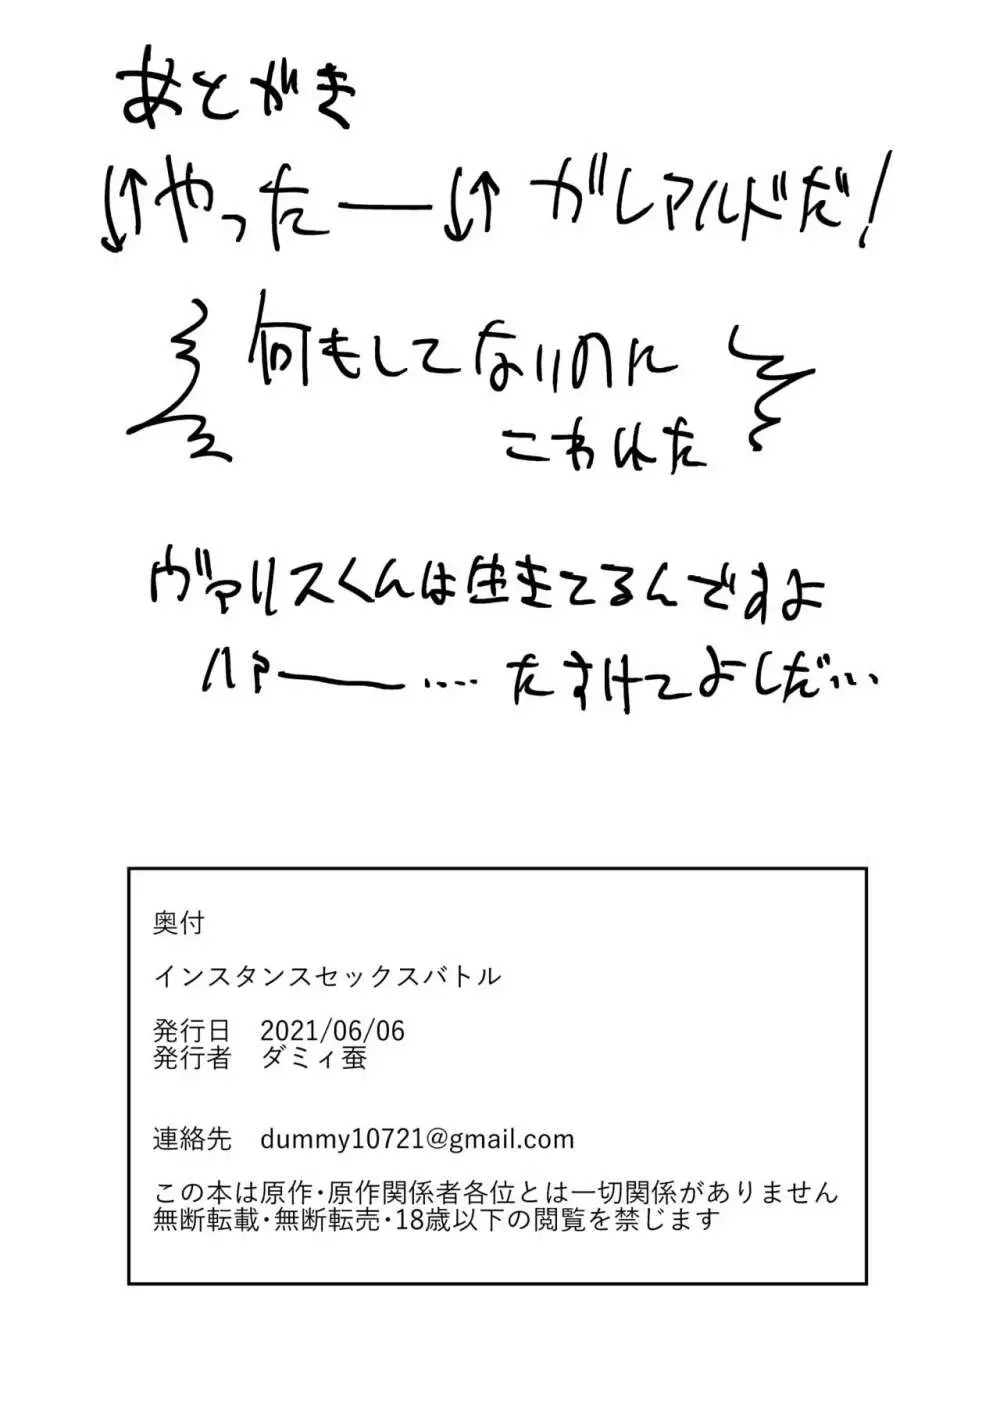 あとがき
↓↑やったー↓↑ ガレアルドだ!
何もしてないのに
こわれた
ヴァリスくんは生きてるんですよ
ハァー‥‥ たすけてよしだ…
奥付
インスタンスセックスバトル
発行日 2021/06/06
発行者 ダミィ蚕
連絡先 dummy10721@gmail.com
この本は原作・原作関係者各位とは一切関係がありません
無断転載・無断転売・18歳以下の閲覧を禁じます